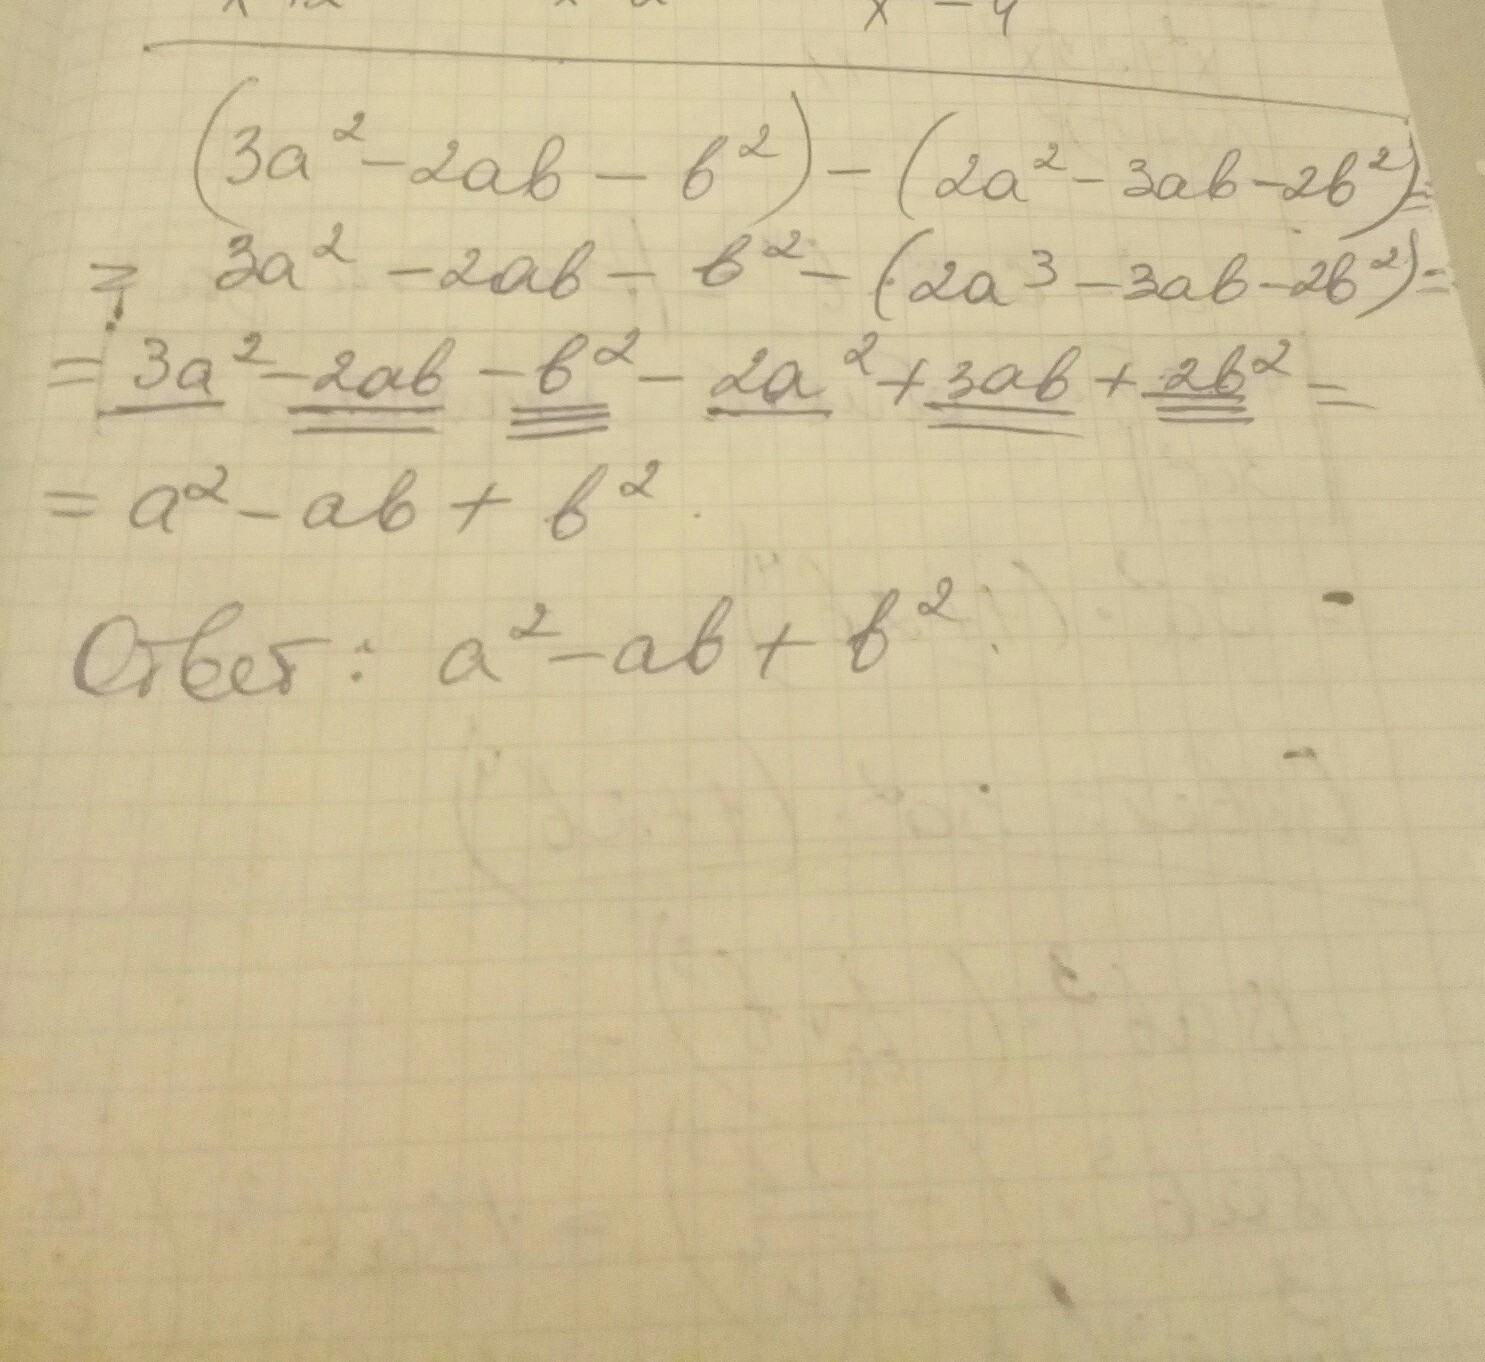 (3a² - 2ab - b²) - (2a² - 3ab - 2b²) =
= 3a² - 2ab - b² - (2a³ - 3ab - 2b²) =
= 3a² - 2ab - b² - 2a² + 3ab + 2b² =
= a² - ab + b²
Ответ: a² - ab + b².